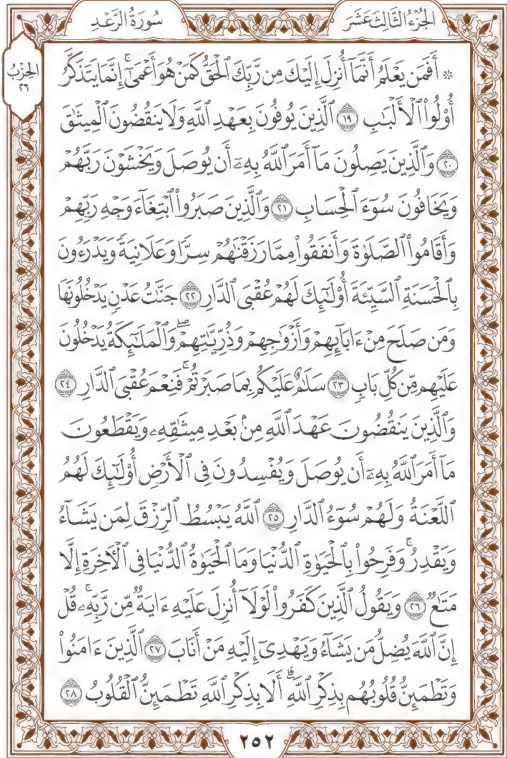 الجُزْءُ الثَّالِثَ عَشَرَ
سُورَةُ الرَّعْدِ
الحِزْبُ
٢٦
۞ أَفَمَن يَعْلَمُ أَنَّمَآ أُنزِلَ إِلَيْكَ مِن رَّبِّكَ ٱلْحَقُّ كَمَنْ هُوَ أَعْمَىٰٓۚ إِنَّمَا يَتَذَكَّرُ
أُو۟لُوا۟ ٱلْأَلْبَٰبِ ١٩ ٱلَّذِينَ يُوفُونَ بِعَهْدِ ٱللَّهِ وَلَا يَنقُضُونَ ٱلْمِيثَٰقَ
٢٠ وَٱلَّذِينَ يَصِلُونَ مَآ أَمَرَ ٱللَّهُ بِهِۦٓ أَن يُوصَلَ وَيَخْشَوْنَ رَبَّهُمْ
وَيَخَافُونَ سُوٓءَ ٱلْحِسَابِ ٢١ وَٱلَّذِينَ صَبَرُوا۟ ٱبْتِغَآءَ وَجْهِ رَبِّهِمْ
وَأَقَامُوا۟ ٱلصَّلَوٰةَ وَأَنفَقُوا۟ مِمَّا رَزَقْنَٰهُمْ سِرًّا وَعَلَانِيَةً وَيَدْرَءُونَ
بِٱلْحَسَنَةِ ٱلسَّيِّئَةَ أُو۟لَٰٓئِكَ لَهُمْ عُقْبَى ٱلدَّارِ ٢٢ جَنَّٰتُ عَدْنٍ يَدْخُلُونَهَا
وَمَن صَلَحَ مِنْ ءَابَآئِهِمْ وَأَزْوَٰجِهِمْ وَذُرِّيَّٰتِهِمْۖ وَٱلْمَلَٰٓئِكَةُ يَدْخُلُونَ
عَلَيْهِم مِّن كُلِّ بَابٍ ٢٣ سَلَٰمٌ عَلَيْكُم بِمَا صَبَرْتُمْۚ فَنِعْمَ عُقْبَى ٱلدَّارِ ٢٤
وَٱلَّذِينَ يَنقُضُونَ عَهْدَ ٱللَّهِ مِنۢ بَعْدِ مِيثَٰقِهِۦ وَيَقْطَعُونَ
مَآ أَمَرَ ٱللَّهُ بِهِۦٓ أَن يُوصَلَ وَيُفْسِدُونَ فِى ٱلْأَرْضِ أُو۟لَٰٓئِكَ لَهُمُ
ٱللَّعْنَةُ وَلَهُمْ سُوٓءُ ٱلدَّارِ ٢٥ ٱللَّهُ يَبْسُطُ ٱلرِّزْقَ لِمَن يَشَآءُ
وَيَقْدِرُۚ وَفَرِحُوا۟ بِٱلْحَيَوٰةِ ٱلدُّنْيَا وَمَا ٱلْحَيَوٰةُ ٱلدُّنْيَا فِى ٱلْأَخِرَةِ إِلَّا
مَتَٰعٌ ٢٦ وَيَقُولُ ٱلَّذِينَ كَفَرُوا۟ لَوْلَآ أُنزِلَ عَلَيْهِ ءَايَةٌ مِّن رَّبِّهِۦۚ قُلْ
إِنَّ ٱللَّهَ يُضِلُّ مَن يَشَآءُ وَيَهْدِىٓ إِلَيْهِ مَنْ أَنَابَ ٢٧ ٱلَّذِينَ ءَامَنُوا۟
وَتَطْمَئِنُّ قُلُوبُهُم بِذِكْرِ ٱللَّهِۗ أَلَا بِذِكْرِ ٱللَّهِ تَطْمَئِنُّ ٱلْقُلُوبُ ٢٨
٢٥٢